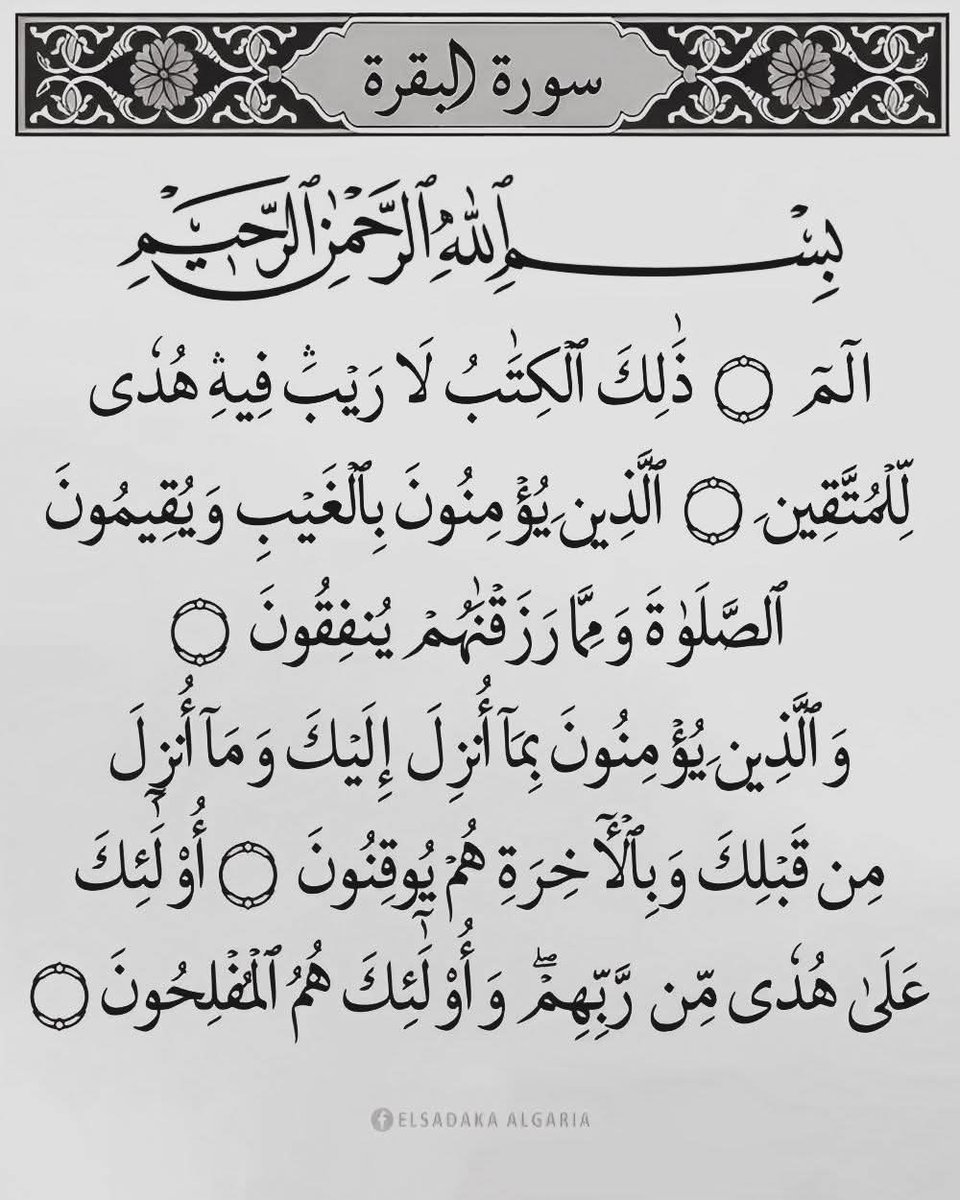 سورة البقرة
بِسْمِ ٱللَّهِ ٱلرَّحْمَٰنِ ٱلرَّحِيمِ
الٓمٓ ۝ ذَٰلِكَ ٱلْكِتَٰبُ لَا رَيْبَ ۛ فِيهِ ۛ هُدًى
لِّلْمُتَّقِينَ ۝ ٱلَّذِينَ يُؤْمِنُونَ بِٱلْغَيْبِ وَيُقِيمُونَ
ٱلصَّلَوٰةَ وَمِمَّا رَزَقْنَٰهُمْ يُنفِقُونَ ۝
وَٱلَّذِينَ يُؤْمِنُونَ بِمَآ أُنزِلَ إِلَيْكَ وَمَآ أُنزِلَ
مِن قَبْلِكَ وَبِٱلْأٓخِرَةِ هُمْ يُوقِنُونَ ۝ أُو۟لَٰٓئِكَ
عَلَىٰ هُدًى مِّن رَّبِّهِمْ ۖ وَأُو۟لَٰٓئِكَ هُمُ ٱلْمُفْلِحُونَ ۝
ELSADAKA ALGARIA